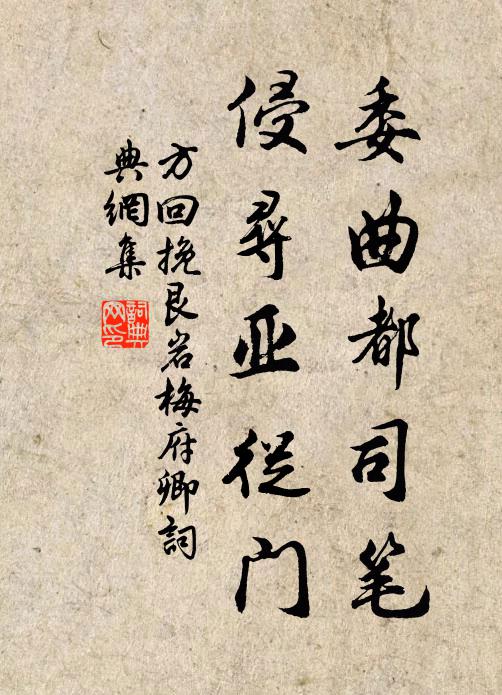 委曲都司笔
侵寻亚従门
方回挽艮岩梅府卿词
典網集
詞典网印